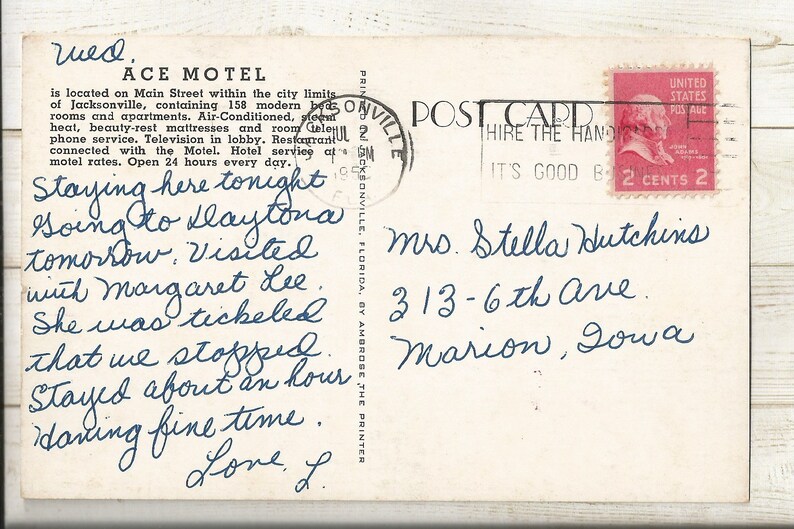 Wed.
ACE MOTEL
is located on Main Street within the city limits
of Jacksonville, containing 158 modern bed-
rooms and apartments. Air-Conditioned, steam
heat, beauty-rest mattresses and room tele-
phone service. Television in lobby. Restaurant
connected with the Motel. Hotel service at
motel rates. Open 24 hours every day.
Staying here tonight
Going to Daytona
tomorrow. Visited
with Margaret Lee.
She was tickeled
that we stopped.
Stayed about an hour
Having fine time.
Love, L.
PRINTED JACKSONVILLE, FLORIDA, BY AMBROSE THE PRINTER
POST CARD
JACKSONVILLE
JUL 2
PM
HIRE THE
IT'S GOOD
UNITED
STATES
POSTAGE
JOHN
ADAMS
2 CENTS 2
Mrs. Stella Hutchins
313-6th Ave.
Marion, Iowa